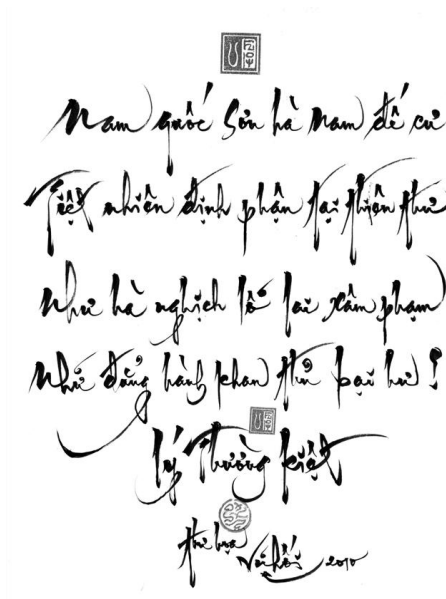 Nam quốc Sơn hà Nam đế cư
Tiệt nhiên định phận tại thiên thư
Như hà nghịch lỗ lai xâm phạm
Nhữ đẳng hành khan thủ bại hư !
Lý Thường Kiệt
2010